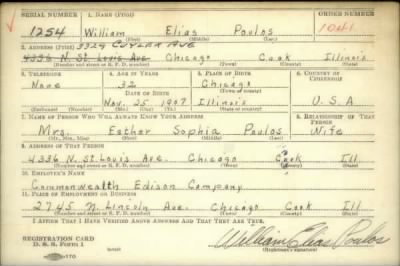 SERIAL NUMBER 1. NAME (Print) ORDER NUMBER
1254 William Elias Poulos 1041
(First) (Middle) (Last)
2. ADDRESS (Print) 3329 CUYLER AVE
4336 N. St. Louis Ave Chicago Cook Illinois
(Number and street or R. F. D. number) (Town) (County) (State)
3. TELEPHONE 4. AGE IN YEARS 5. PLACE OF BIRTH 6. COUNTRY OF CITIZENSHIP
None 32 Chicago
DATE OF BIRTH (Town or county)
Nov. 25 1907 Illinois U.S.A
(Exchange) (Number) (Mo.) (Day) (Yr.) (State or country)
7. NAME OF PERSON WHO WILL ALWAYS KNOW YOUR ADDRESS 8. RELATIONSHIP OF THAT PERSON
Mrs. Esther Sophia Poulos Wife
(Mr., Mrs., Miss) (First) (Middle) (Last)
9. ADDRESS OF THAT PERSON
4336 N. St. Louis Ave. Chicago Cook Ill
(Number and street or R. F. D. number) (Town) (County) (State)
10. EMPLOYER'S NAME
Commonwealth Edison Company
11. PLACE OF EMPLOYMENT OR BUSINESS
2745 N. Lincoln Ave. Chicago Cook Ill
(Number and street or R. F. D. number) (Town) (County) (State)
I AFFIRM THAT I HAVE VERIFIED ABOVE ANSWERS AND THAT THEY ARE TRUE.
REGISTRATION CARD
D. S. S. Form 1 William Elias Poulos
(Registrant's signature)